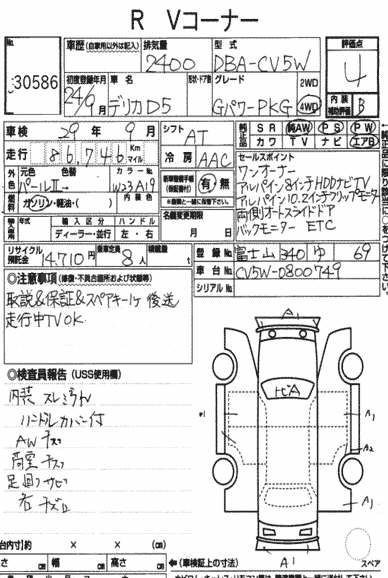 R Vコーナー
No. 30586
車歴 (自家用以外は記入) 排気量 2400 型式 DBA-CV5W
評価点 4
初度登録年月 24/9月 車名 デリカD5 形状・ドア数 グレード GパワーPKG 2WD 4WD
内装 B
車検 29年 9月 シフト AT
純正品 SR 純AW PS PW
カワ TV ナビ エアB
走行 86,746 Km マイル
冷房 AAC
外色 元色 パールII→ 色替 カラーNo. W23A19
内装色
燃料 ガソリン・軽油・( )
新車整備手帳(保証書付) 有・無
セールスポイント
ワンオーナー
アルパイン8インチHDDナビTV
アルパイン10.2インチフリップモーター
両側オートスライドドア
バックモニター ETC
輸入区分 ハンドル
ディーラー・並行 左・右
名義変更期限 月 日
リサイクル預託金 14,710円 乗車定員 8人 積載量 t
登録No. 富士山 340 ゆ 69
車台No. CV5W-0800749
シリアルNo.
◎注意事項 (修復・不具合箇所および状態等)
取説&保証&スペアキー1ヶ 後送
走行中TVOK
◎検査員報告 (USS使用欄)
内装 スレ
ハンドルカバー付
AWキズ
荷室キズ
足回サビ
A1
A1
A1
A2
A1
A1
スペア
台内寸) 約 × × (㎝)
さ ㎝ 幅 ㎝ 高さ ㎝ ←(車検証上の寸法)